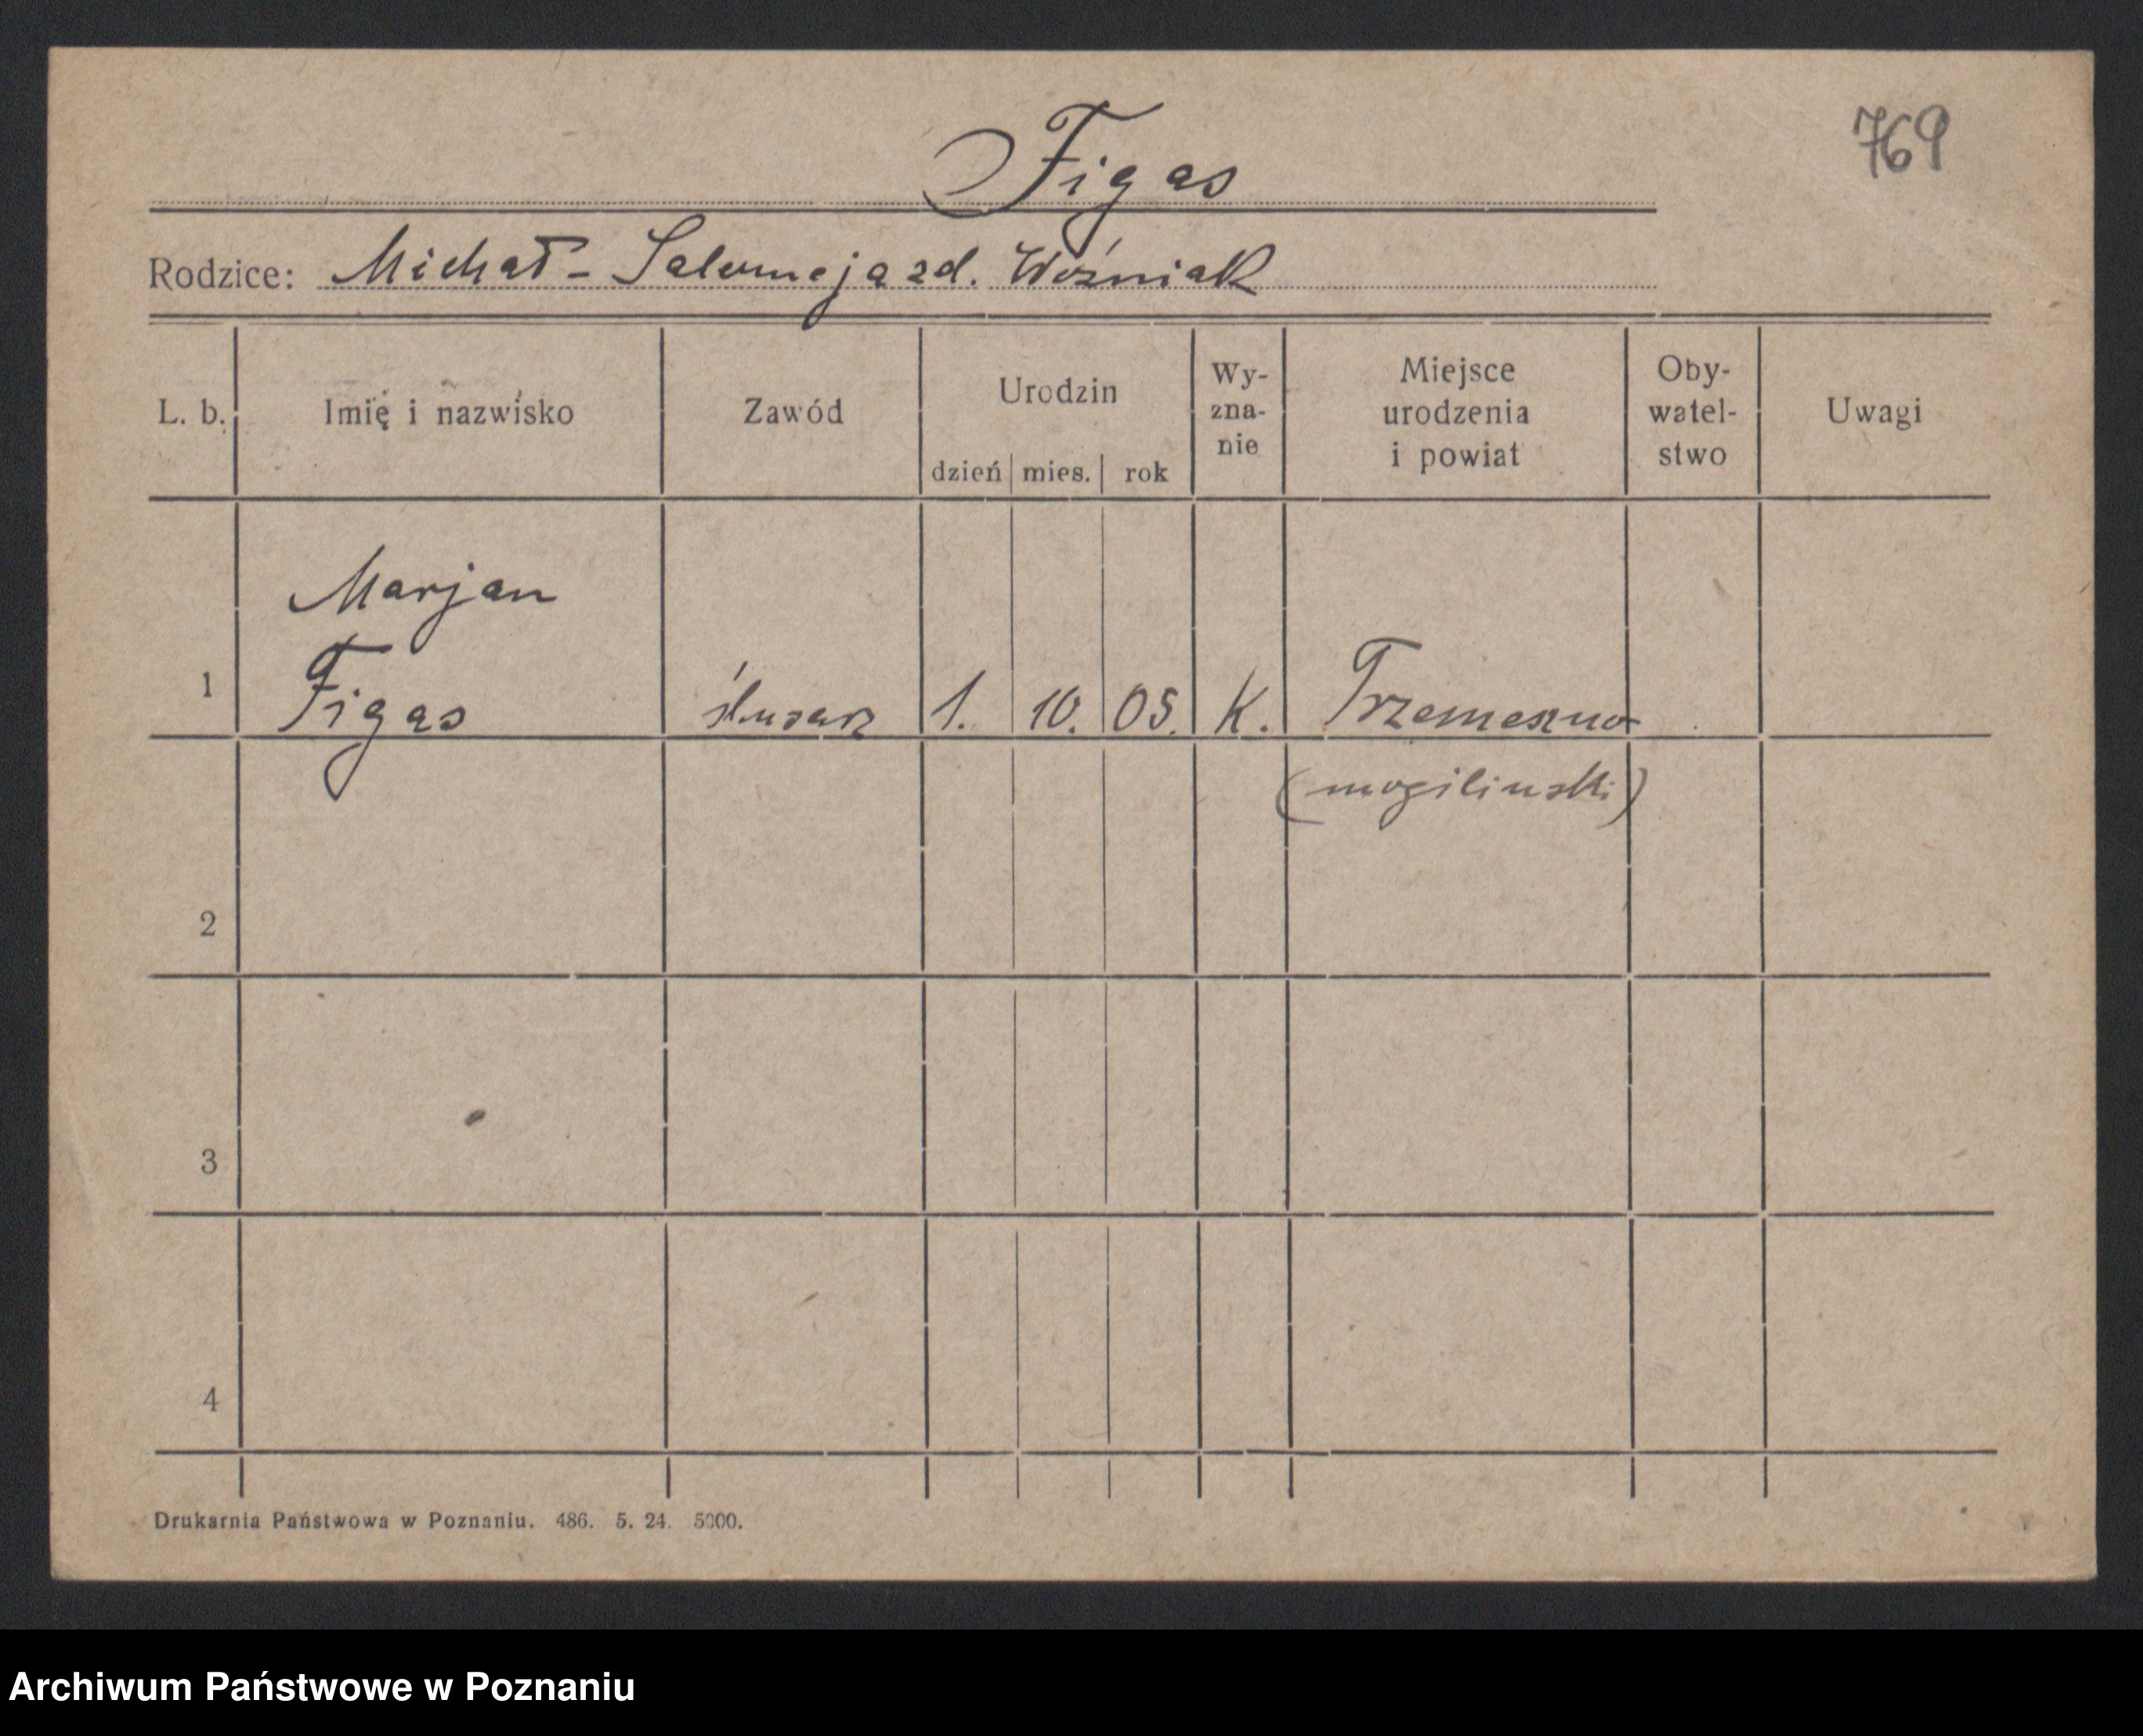 769
Figas
Rodzice: Michał - Salomeja zd. Woźniak
L. b. Imię i nazwisko Zawód Urodzin dzień mies. rok Wy-zna-nie Miejsce urodzenia i powiat Oby-watel-stwo Uwagi
Marjan
1 Figas ślusarz 1. 10. 05. K. Trzemeszno
(mogilinski)
2
3
4
Drukarnia Państwowa w Poznaniu. 486. 5. 24. 5000.
Archiwum Państwowe w Poznaniu